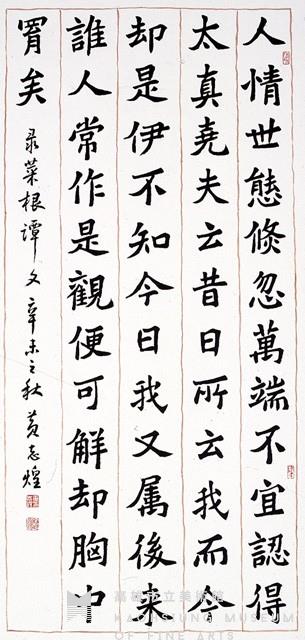 人情世態倏忽萬端不宜認得
太真尭夫云昔日所云我而今
却是伊不知今日我又属後来
誰人常作是觀便可觧却胸中
罥矣 录菜根谭文辛未之秋黄志煌
高雄市立美術館
KAOHSIUNG MUSEUM
OF FINE ARTS